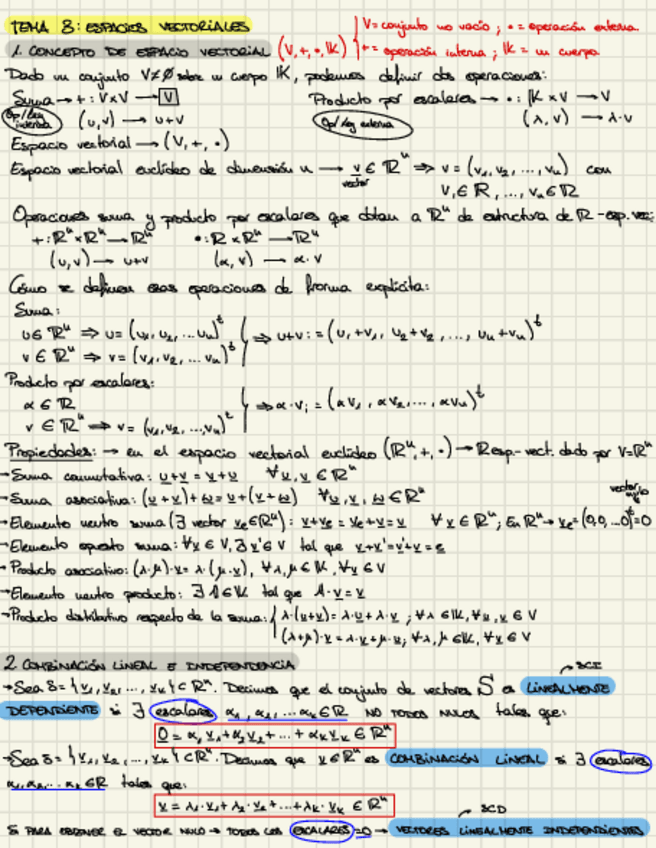 TEMA 3: ESPACIOS VECTORIALES
V = conjunto no vacío ; • = operación externa
1. CONCEPTO DE ESPACIO VECTORIAL (V, +, •, 𝕂) + = operación interna ; 𝕂 = un cuerpo
Dado un conjunto V≠∅ sobre un cuerpo 𝕂, podemos definir dos operaciones:
Suma → + : V×V → V Producto por escalares → • : 𝕂×V → V
Op/Ley interna (u,v) → u+v Op/Ley externa (λ,v) → λ·v
Espacio vectorial → (V, +, •)
Espacio vectorial euclídeo de dimensión n → v ∈ ℝⁿ ⇒ v = (v₁, v₂, ..., vₙ) con
vector v₁ ∈ ℝ, ..., vₙ ∈ ℝ
Operaciones suma y producto por escalares que dotan a ℝⁿ de estructura de ℝ-esp. vec:
+ : ℝⁿ×ℝⁿ → ℝⁿ • : ℝ×ℝⁿ → ℝⁿ
(u,v) → u+v (α,v) → α·v
Cómo se definen esas operaciones de forma explícita:
Suma:
u ∈ ℝⁿ ⇒ u = (u₁, u₂, ... uₙ)ᵗ
⇒ u+v := (u₁+v₁, u₂+v₂, ..., uₙ+vₙ)ᵗ
v ∈ ℝⁿ ⇒ v = (v₁, v₂, ... vₙ)ᵗ
Producto por escalares:
α ∈ ℝ
⇒ α·v := (αv₁, αv₂, ..., αvₙ)ᵗ
v ∈ ℝⁿ ⇒ v = (v₁, v₂, ..., vₙ)ᵗ
Propiedades: → en el espacio vectorial euclídeo (ℝⁿ, +, •) → ℝ esp.-vect. dado por V=ℝⁿ
- Suma conmutativa: u+v = v+u ∀ u,v ∈ ℝⁿ
- Suma asociativa: (u+v)+ω = u+(v+ω) ∀ u,v,ω ∈ ℝⁿ
vector nulo
- Elemento neutro suma (∃ vector vₑ∈ℝⁿ): v+vₑ = vₑ+v = v ∀ v ∈ ℝⁿ; En ℝⁿ → vₑ = (0,0,...0)ᵗ = 0
- Elemento opuesto suma: ∀ v ∈ V, ∃ v' ∈ V tal que v+v' = v'+v = e
- Producto asociativo: (λ·μ)·v = λ·(μ·v), ∀ λ,μ ∈ 𝕂, ∀ v ∈ V
- Elemento neutro producto: ∃ 1 ∈ 𝕂 tal que 1·v = v
- Producto distributivo respecto de la suma: λ·(u+v) = λ·u+λ·v ; ∀ λ ∈ 𝕂, ∀ u,v ∈ V
(λ+μ)·v = λ·v+μ·v; ∀ λ,μ ∈ 𝕂, ∀ v ∈ V
2. COMBINACIÓN LINEAL E INDEPENDENCIA
→ SCI
→ Sea S = {v₁, v₂, ..., vₖ} ⊂ ℝⁿ. Decimos que el conjunto de vectores S es LINEALMENTE
DEPENDIENTE si ∃ escalares α₁, α₂, ... αₖ ∈ ℝ NO TODOS NULOS tales que:
0 = α₁v₁+α₂v₂+...+αₖvₖ ∈ ℝⁿ
→ Sea S = {v₁, v₂, ..., vₖ} ⊂ ℝⁿ. Decimos que v ∈ ℝⁿ es COMBINACIÓN LINEAL si ∃ escalares
α₁, α₂, ... αₖ ∈ ℝ tales que:
v = λ₁·v₁+λ₂·v₂+...+λₖ·vₖ ∈ ℝⁿ
→ SCD
SI PARA OBTENER EL VECTOR NULO → TODOS LOS ESCALARES = 0 → VECTORES LINEALMENTE INDEPENDIENTES